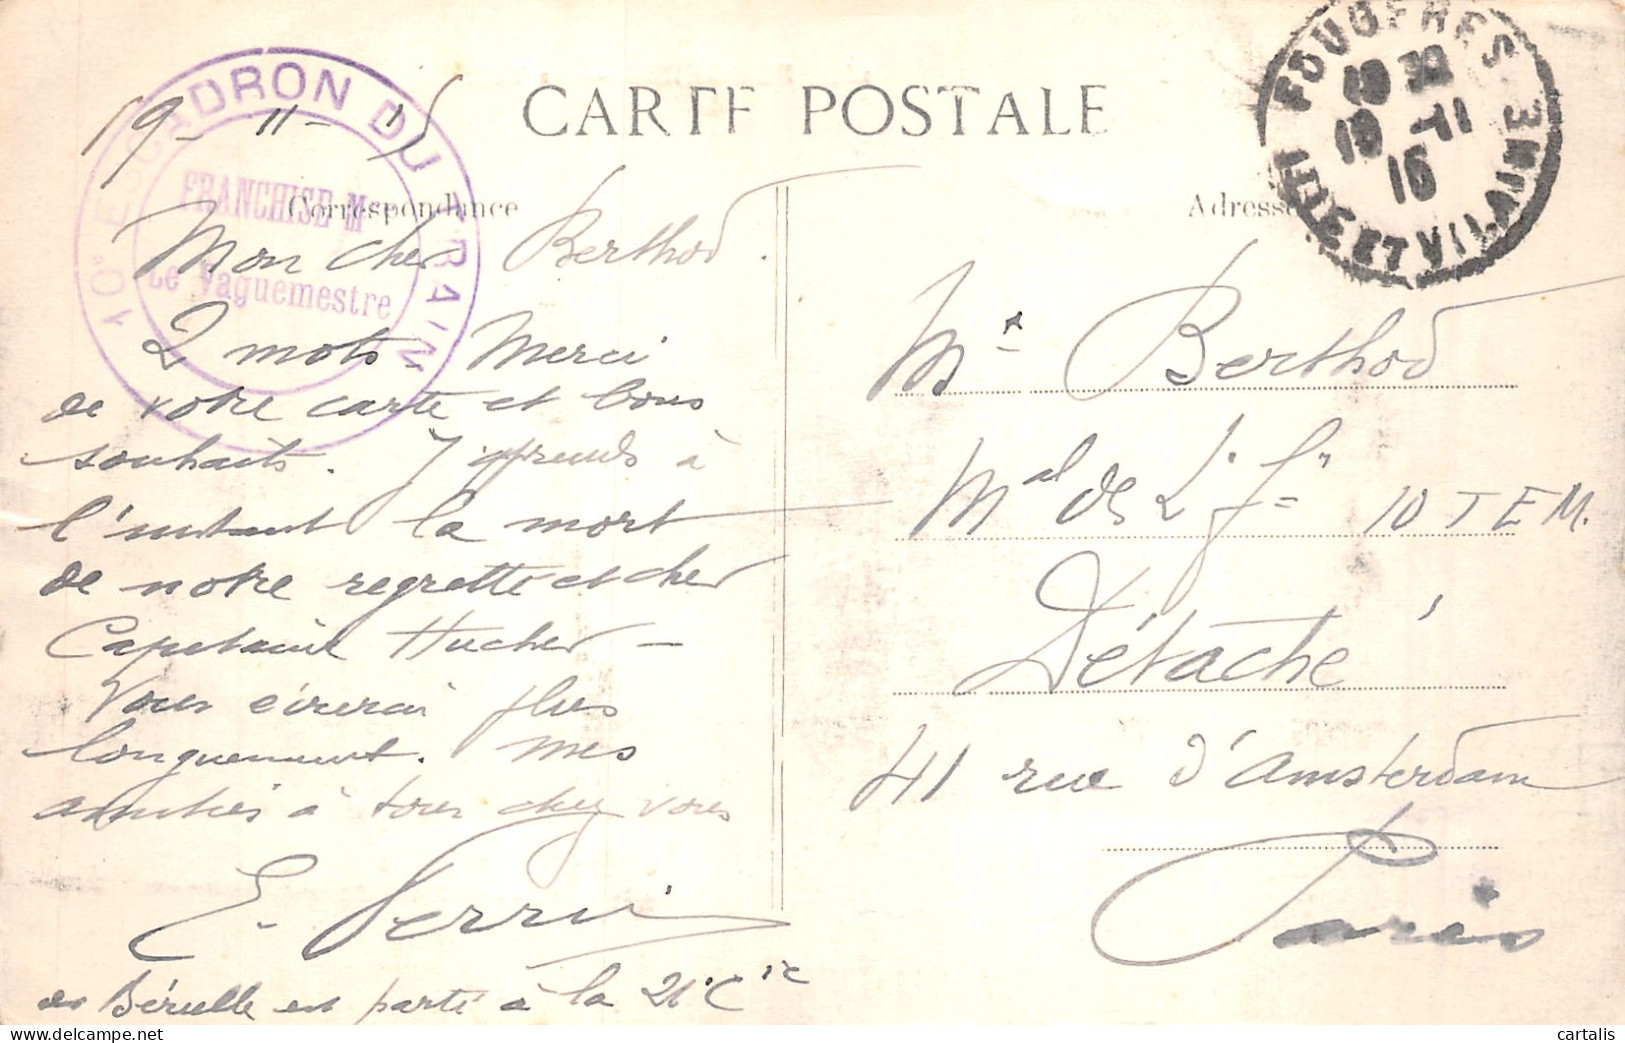 CARTE POSTALE
10º ESCADRON DU TRAIN
FRANCHISE Mre
Le Vaguemestre
19-11-15
Correspondance
Mon cher Berthod.
2 mots. Merci
de votre carte et bons
souhaits. J'apprends à
l'instant la mort
de notre regretté et cher
Capitaine Hucher –
Vous écrirai plus
longuement. Mes
amitiés à tous chez vous
E.
de Bérulle est parti à la 21e Cie
FOUGERES
ILLE-ET-VILAINE
19 -11
15
Adresse
Mr Berthod
Mal de Lis 10 T E M.
Détaché
41 rue d'Amsterdam
Paris
cartalis